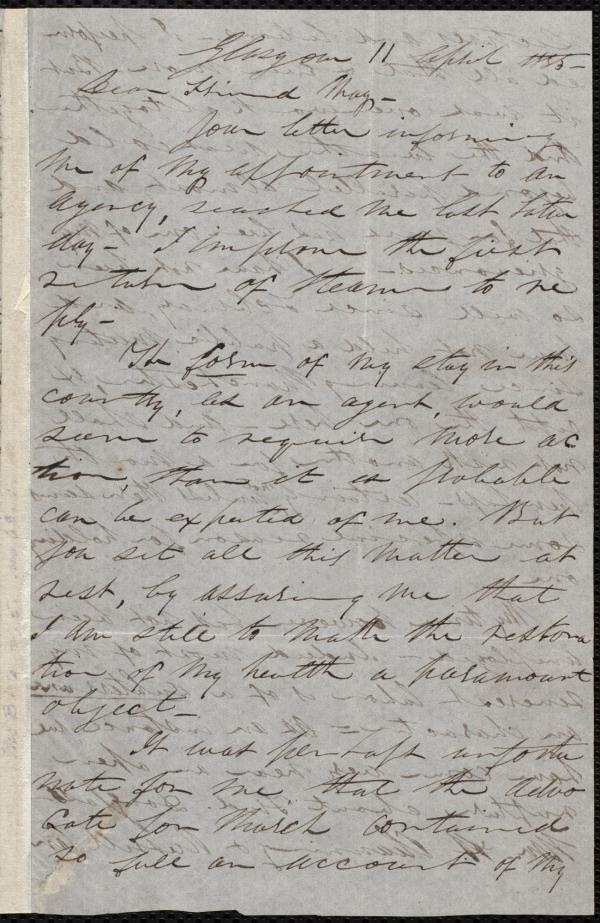 Glasgow 11 April
Dear Friend May -
Your letter informing
me of my appointment to an
agency, reached me last Satur
day - I improve the first
return of steamer to re
ply -
The form of my stay in this
country, as an agent, would
seem to require more ac
tion, than it is probable
can be expected of me. But
you set all this matter at
rest, by assuring me that
I am still to make the restora
tion of my health a paramount
object -
It was perhaps unfortu
nate for me that the Advo
cate for March contained
so full an account of my